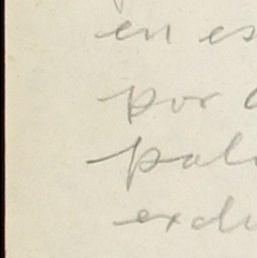 en es
por
pal
exclu